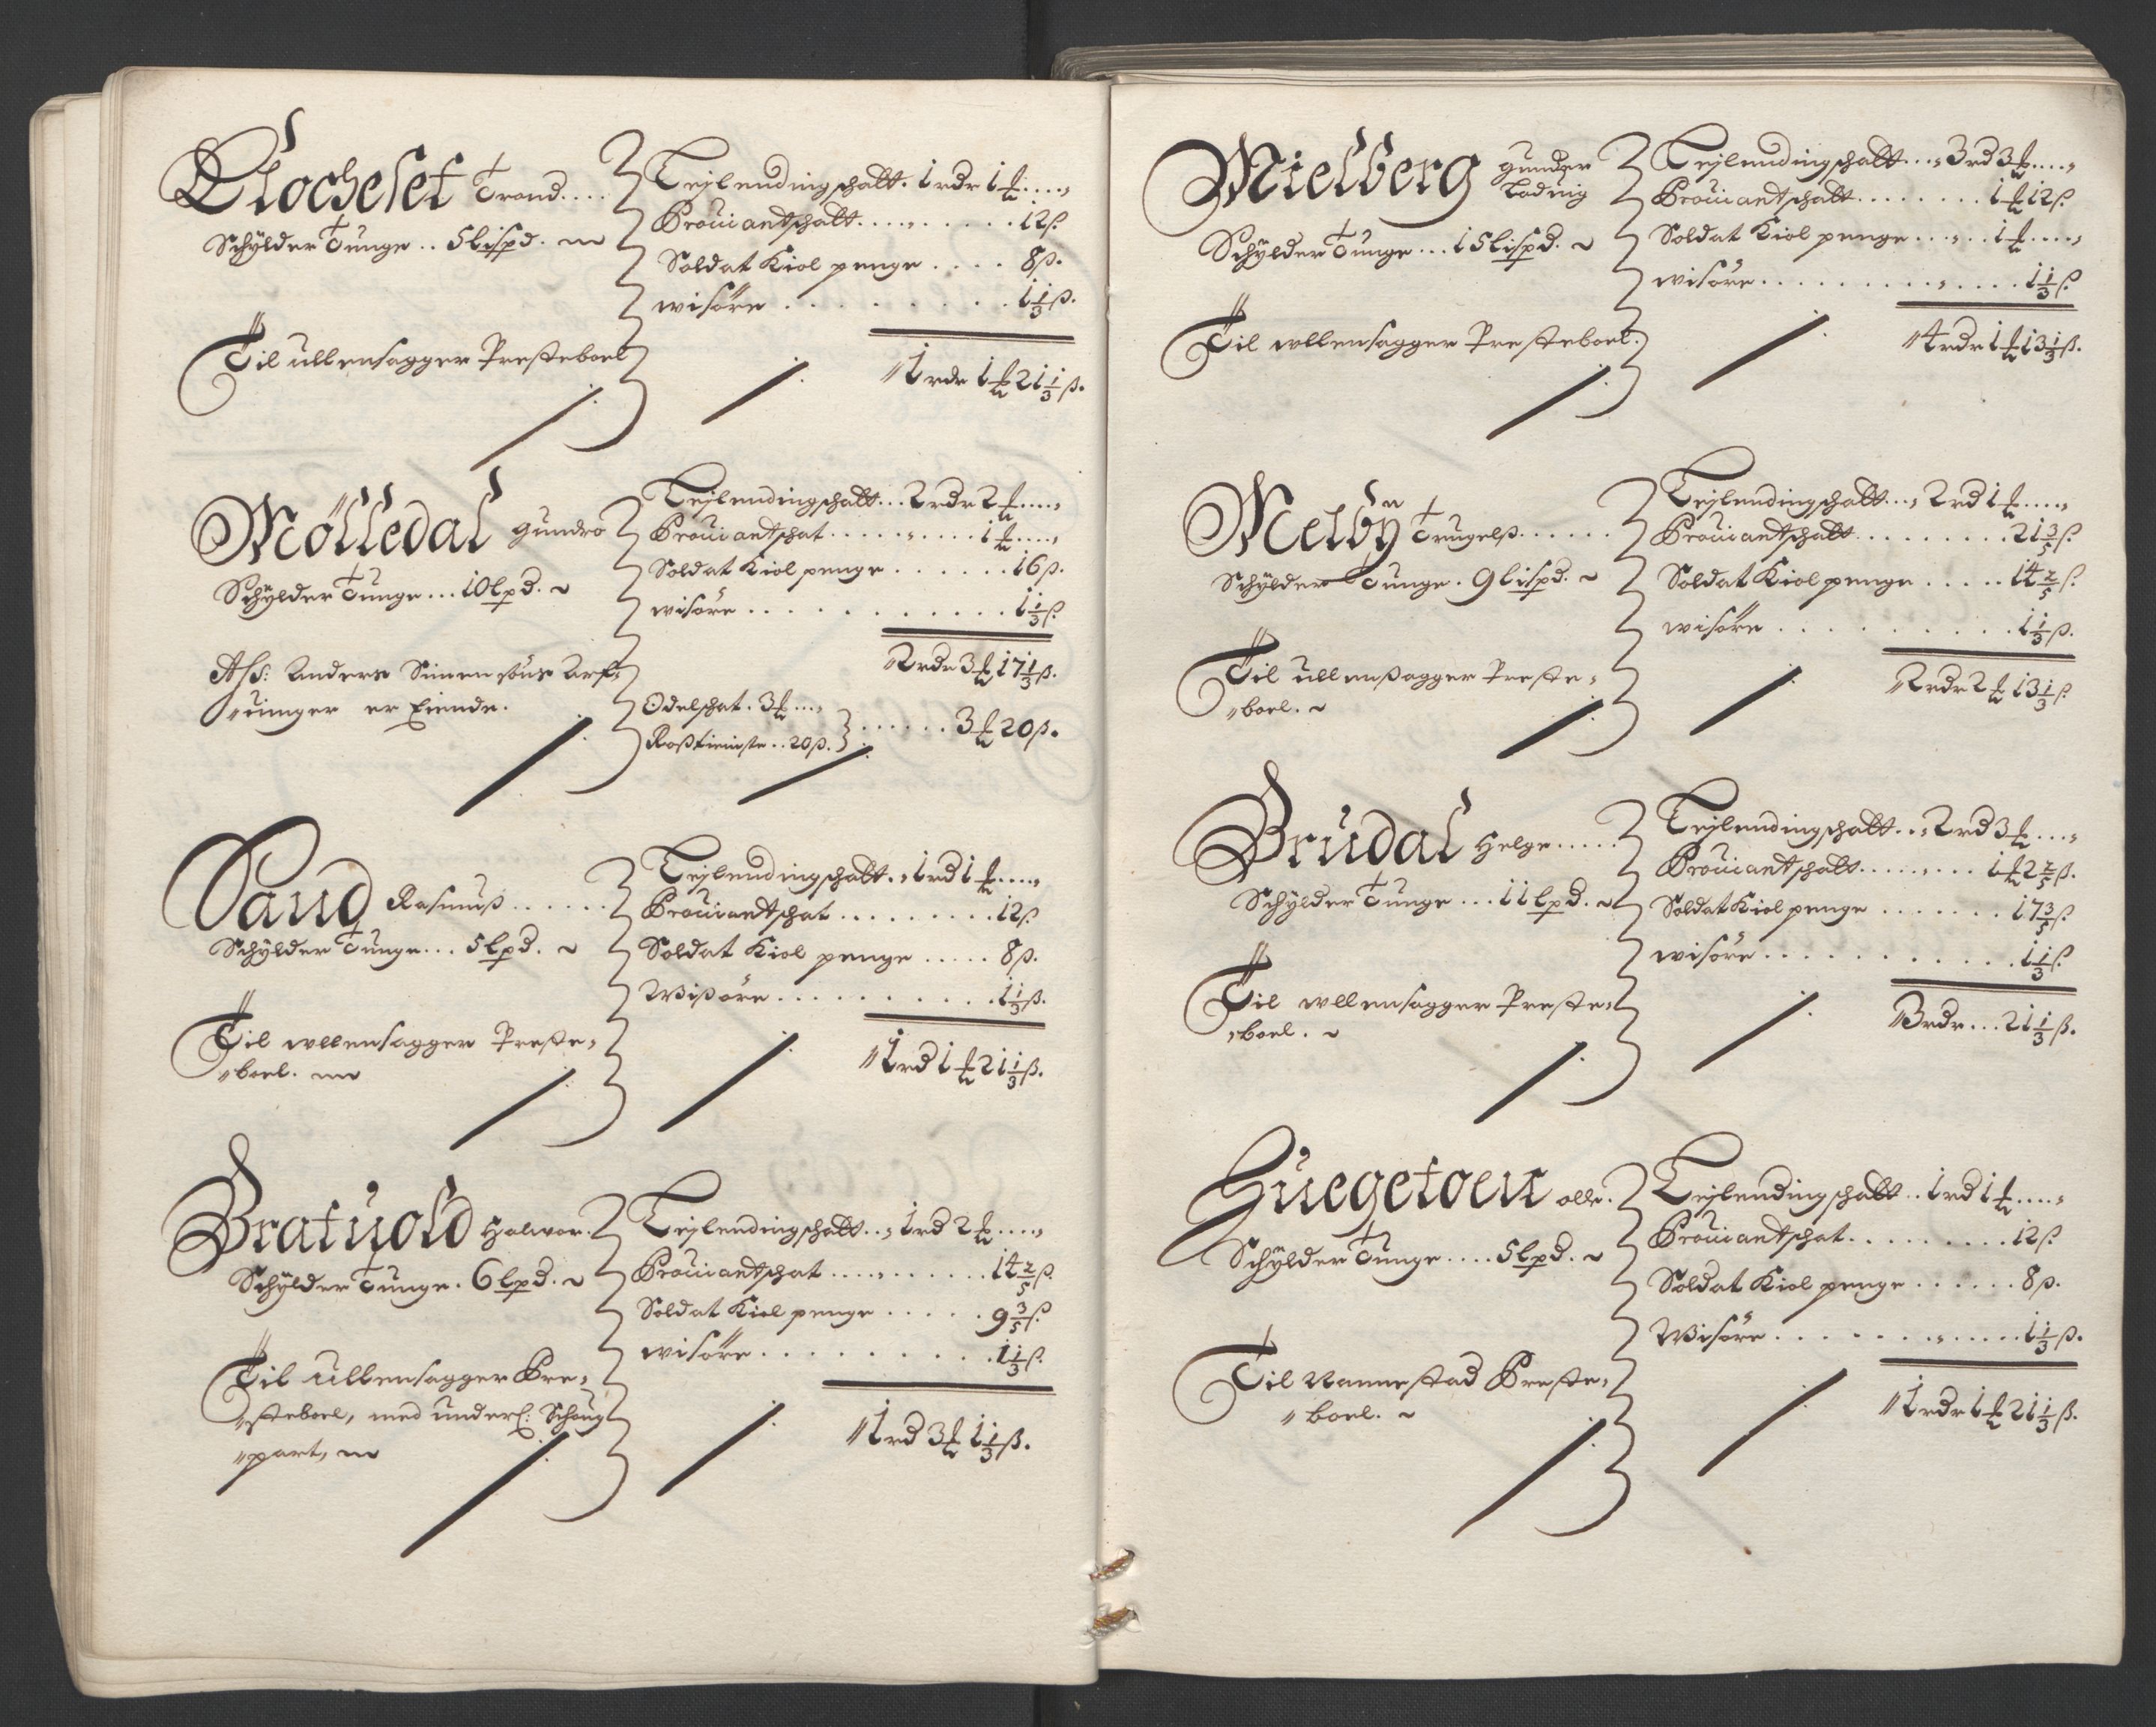 Klocheset Trond....
Schÿlder Tunge .. 5 lispd.
Til ullensagger Presteboel
Leylendingschatt. 1 rdr 1 ₶....
Prouiantschatt......... 12 ß
Soldat Kiol penge .... 8 ß.
wisöre ......... 1 1/3 ß.
1 rdr 1 ₶ 21 1/3 ß.
Mölledal gundro
Schÿlder Tunge ... 10 lpd.
Ass: Anders Simensöns Arf-
uinger er Eiende.
Leylendingschatt... 2 rdr 2 ₶....
Prouiantschat ......... 1 ₶....
Soldat Kiol penge ...... 16 ß.
wisöre ........... 1 1/3 ß.
2 rdr 3 ₶ 17 1/3 ß.
Odelschat. 3 ₶ ...
Rosstieniste .. 20 ß. } ...... 3 ₶ 20 ß.
Sand Rasmuß ......
Schÿlder Tunge... 5 lpd.
Til ullensagger Preste-
boel.
Leylendingschatt. 1 rd 1 ₶....
Prouiantschat ......... 12 ß
Soldat Kiol penge ..... 8 ß.
Wißöre .......... 1 1/3 ß.
1 rd 1 ₶ 21 1/3 ß.
Bratuold Halwor.
Schÿlder Tunge. 6 lpd.
Til ullensagger Pre-
steboel, med underl: Schoug
part,
Leylendingschatt.. 1 rd 2 ₶....
Prouiantschat ......... 14 2/5 ß.
Soldat Kiol penge ..... 9 3/5 ß.
wisöre .......... 1 1/3 ß.
1 rd 3 ₶ 1 1/3 ß.
Mielberg gunder
Loduig
Schÿlder Tunge ... 15 lispd.
Til ullensagger Presteboel.
Leylendingschatt... 3 rd 3 ₶....
Prouiantschatt ........ 1 ₶ 12 ß
Soldat Kiol penge ..... 1 ₶....
wisöre ............ 1 1/3 ß
4 rdr 1 ₶ 13 1/3 ß.
Melbÿ Trugelß......
Schÿlder Tunge. 9 lispd.
Til ullensßagger Preste-
boel.
Leylendingschatt... 2 rd 1 ₶....
Prouiantschatt ......... 21 3/5 ß
Soldat Kiol penge ..... 14 2/5 ß.
wisöre .......... 1 1/3 ß.
2 rdr 2 ₶ 13 1/3 ß
Brudal Helge.....
Schÿlder Tunge ... 11 lpd.
Til ullensagger Preste-
boel.
Leylendingschatt... 2 rd 3 ₶...
Prouiantschatt........ 1 ₶ 2 2/5 ß.
Soldat Kiol penge ....... 17 3/5 ß
wisöre ............ 1 1/3 ß
3 rdr ... 21 1/3 ß.
Huegetoen olle.
Schÿlder Tunge .... 5 lpd.
Til Nannestad Preste-
boel.
Leylendingschatt.. 1 rd 1 ₶....
Prouiantschat ......... 12 ß
Soldat Kiol penge ...... 8 ß.
Wisöre ............ 1 1/3 ß.
1 rdr 1 ₶ 21 1/3 ß.